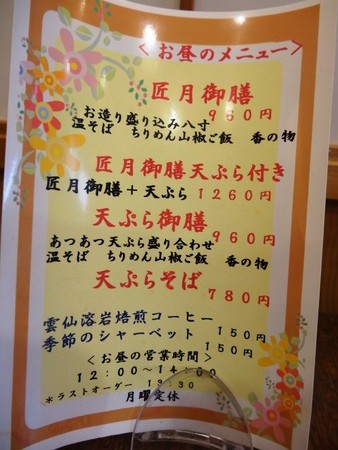 ＜お昼のメニュー＞
匠月御膳
960円
お造り盛り込み八寸
温そば ちりめん山椒ご飯 香の物
匠月御膳天ぷら付き
匠月御膳＋天ぷら 1260円
天ぷら御膳
960円
あつあつ天ぷら盛り合わせ
温そば ちりめん山椒ご飯 香の物
天ぷらそば
780円
雲仙溶岩焙煎コーヒー
150円
季節のシャーベット
150円
＜お昼の営業時間＞
12：00～14：00
＊ラストオーダー 13：30
月曜定休